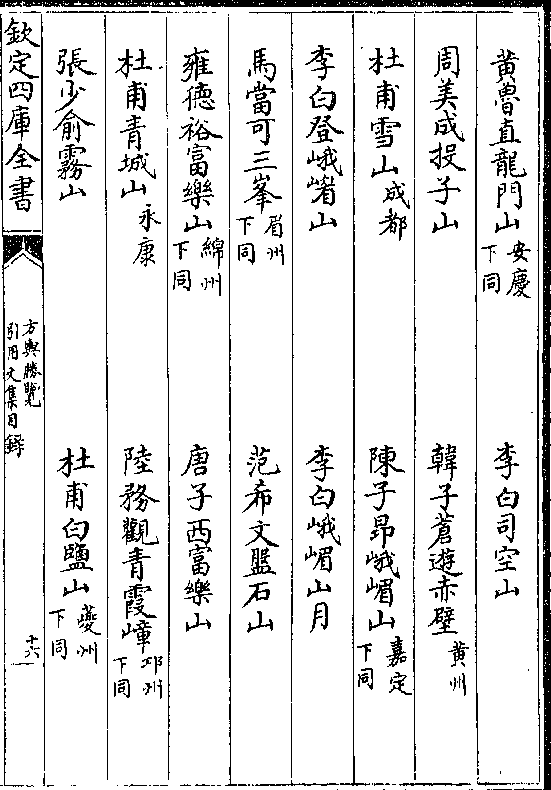 黄魯直龍門山安慶下同　李白司空山
周美成投子山　韓子蒼遊赤壁黄州
杜甫雪山成都　陳子昂峨嵋山嘉定下同
李白登峨嵋山　李白峨嵋山月
馬當可三峯眉州下同　范希文盤石山
雍德裕富樂山綿州下同　唐子西富樂山
杜甫青城山永康　陸務觀青霞嶂邛州下同
張少俞霧山　杜甫白鹽山夔州下同
欽定四庫全書
方輿勝覽
引用文集目録
十六